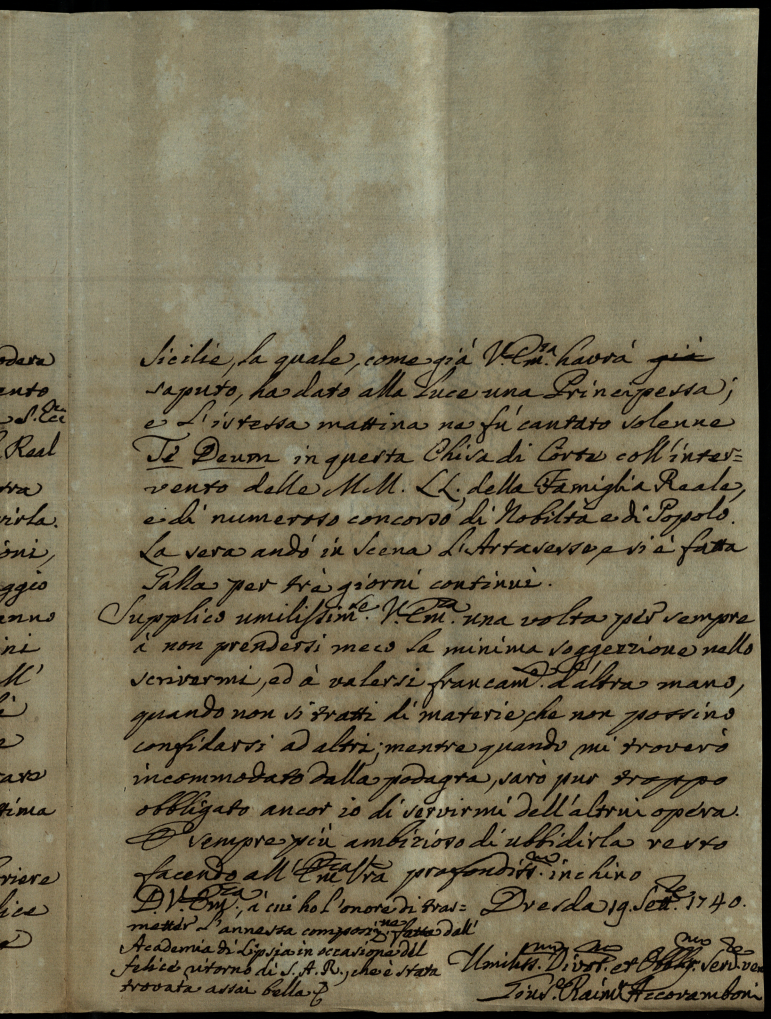 odera
ento
S. Ecc
Real
rra
virla.
ioni,
ggio
anno
ini
ll'
li
e
tima
riere
lice
Sicilie, la quale, come già V. Em.za havrà già
saputo, ha dato alla Luce una Principessa;
e l'istessa mattina ne fú cantato solenne
Te Deum in questa Chisa di Corte coll'inter=
vento delle M.M. LL. della Famiglia Reale,
e di numeroso concorso di Nobiltà e di Popolo.
La sera andó in Scena L'Artaserse, e si é fatta
Galla per trè giorni continui.
Supplico umilissim.te V. Em.za una volta per sempre
à non prendersi meco la minima soggezzione nello
scrivermi, ed à valersi francam.te d'altra mano,
quando non si tratti di materie, che non possino
confidarsi ad altri; mentre quando mi troverò
incommodato dalla podagra, sarò pur troppo
obbligato ancor io di servirmi dell'altrui opera.
E sempre più ambizioso di ubbidirla resto
facendo all'Em.za Vra profondiss.mo inchino
D. V. Em.za, à cui ho l'onore di tras=
metter l'annessa compoziz.ne fatta dell'
Academia di Lipsia in occasione del
felice ritorno di S. A. R., che è stata
trovata assai bella.
Dresda 19. Sett.e 1740.
Umiliss.mo Divot.mo et Obblig.mo Serv.
Raim.o Accoramboni